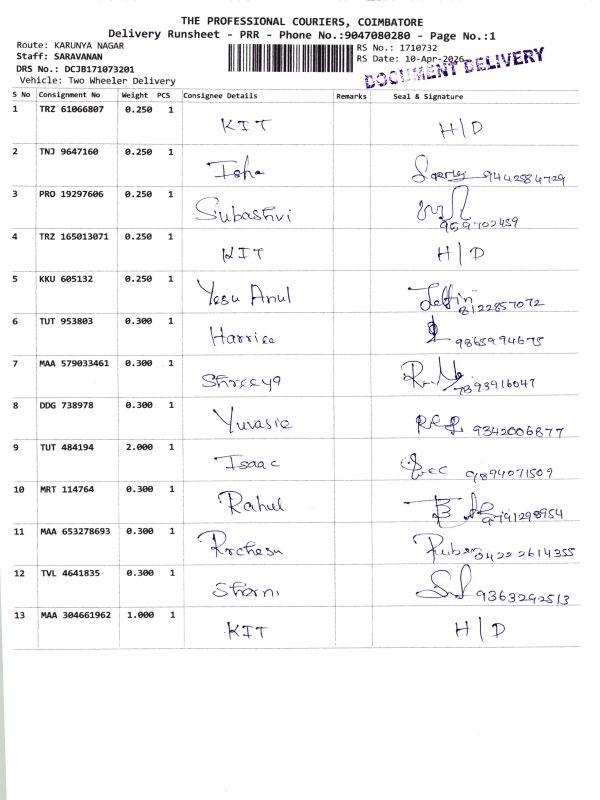 THE PROFESSIONAL COURIERS, COIMBATORE
Delivery Runsheet - PRR - Phone No.:9047080280 - Page No.:1
Route: KARUNYA NAGAR
Staff: SARAVANAN
DRS No.: DCJB171073201
Vehicle: Two Wheeler Delivery
RS No.: 1710732
RS Date: 10-Apr-2026
DOCUMENT DELIVERY
S No Consignment No Weight PCS Consignee Details Remarks Seal & Signature
1 TRZ 61066807 0.250 1 KIT H/D
2 TNJ 9647160 0.250 1 Isha 9442584729
3 PRO 19297606 0.250 1 Subashvi 959702459
4 TRZ 165013071 0.250 1 KIT H/D
5 KKU 605132 0.250 1 Yesu Anul Jeffin 8122857072
6 TUT 953803 0.300 1 Harrise 9865994675
7 MAA 579033461 0.300 1 Shreeya 7893916047
8 DDG 738978 0.300 1 Yuvasie 9342006877
9 TUT 484194 2.000 1 Isaac 9894071509
10 MRT 114764 0.300 1 Rahul 9791298954
11 MAA 653278693 0.300 1 Ruben 04222614355
12 TVL 4641835 0.300 1 Sharni 9363292513
13 MAA 304661962 1.000 1 KIT H/D